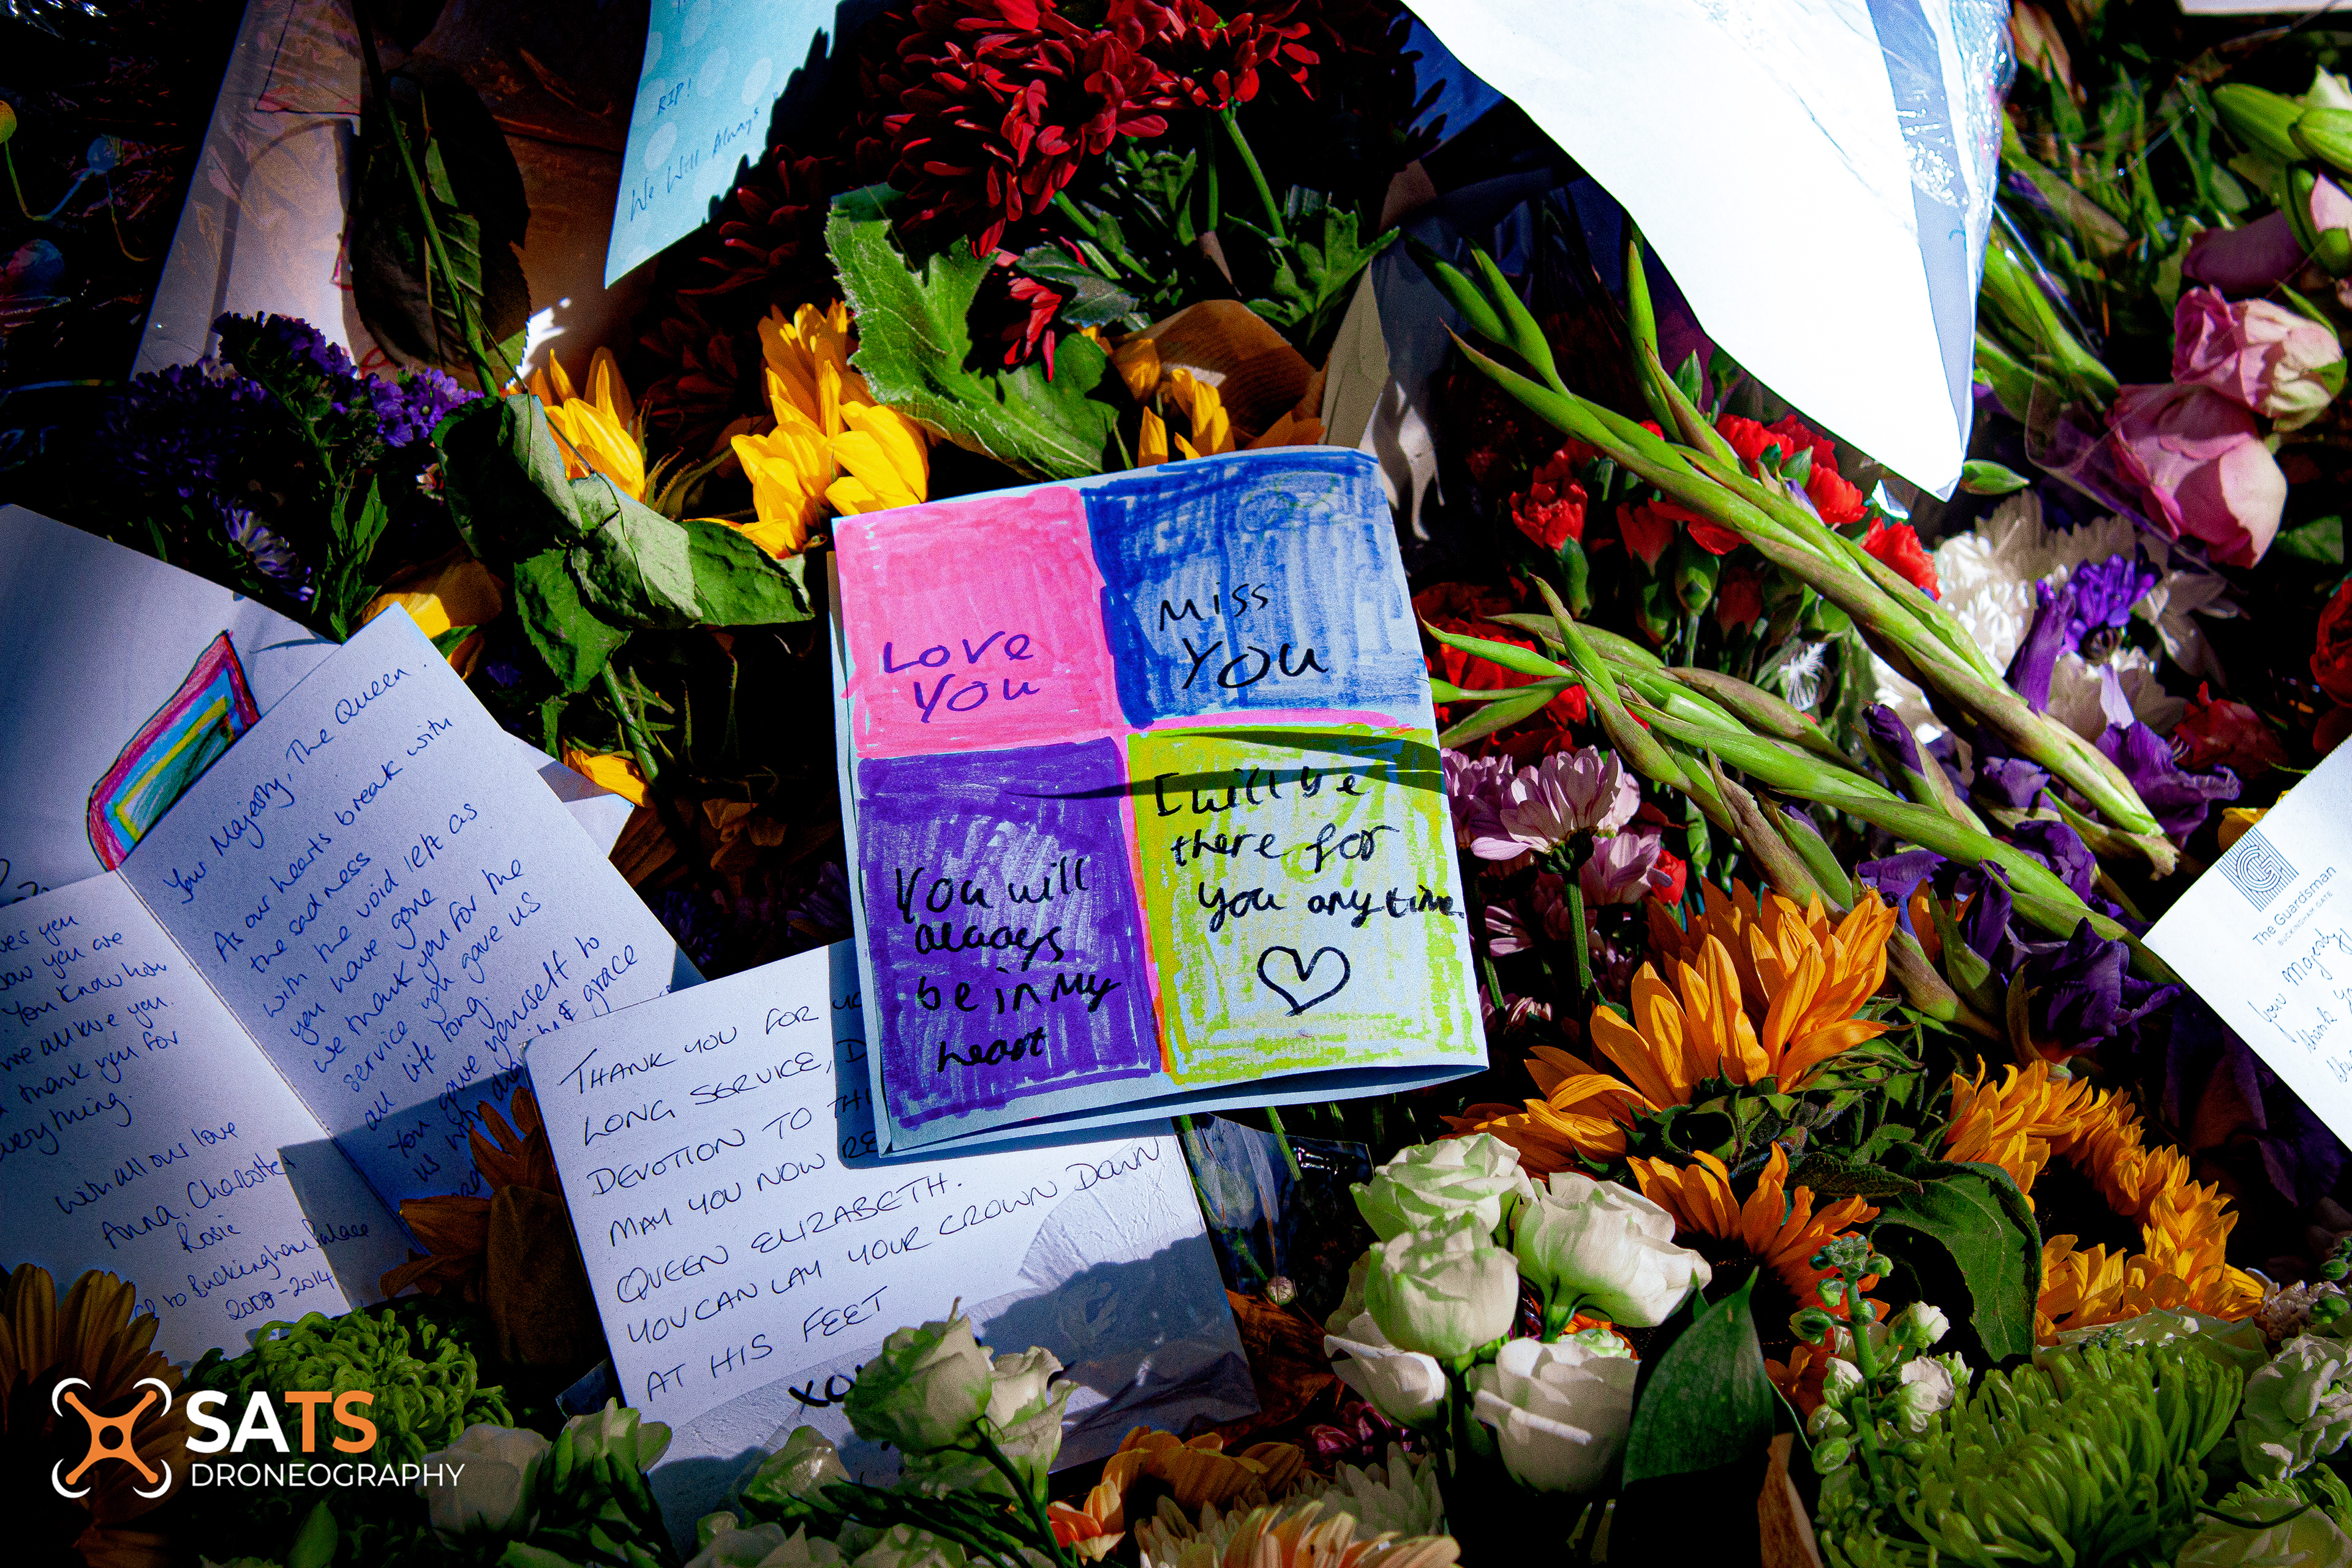 RIP!
We Will Always
LOVE
YOU
MISS
YOU
You will
always
be in My
heart
I will be
there for
you anytime
Your Majesty, The Queen.
As our hearts break with
the sadness
with the void left as
you have gone
we thank you for the
service you gave us
all life long.
You gave yourself to
us with & grace
you
you are
You know how
we all love you.
thank you for
everything.
With all our love
Anna, Charlotte
Rosie
to Buckingham Palace
2008-2014
THANK YOU FOR
LONG SERVICE,
DEVOTION TO
MAY YOU NOW
QUEEN ELIZABETH.
YOU CAN LAY YOUR CROWN DOWN
AT HIS FEET
The Guardsman
BUCKINGHAM GATE
Your Majesty
thank
SATS
DRONEOGRAPHY